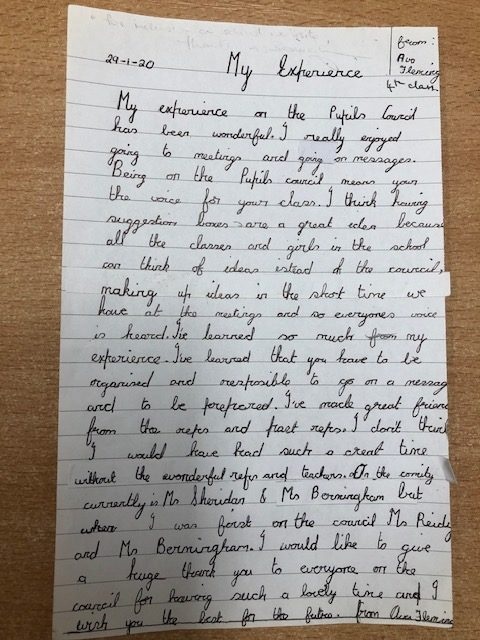 29-1-20
My Experience
from:
Ava
Fleming
4th class
My experience on the Pupils Council
has been wonderful. I really enjoyed
going to meetings and going on messages.
Being on the Pupils council means your
the voice for your class. I think having
suggestion boxes are a great idea because
all the classes and girls in the school
can think of ideas estead of the council,
making up ideas in the short time we
have at the meetings and so everyones voice
is heard. I've learned so much from my
experience. I've learned that you have to be
organised and responsible to go on a messag
and to be prepared. I've made great friend
from the reps and past reps. I don't think
I would have had such a great time
without the wonderful reps and teachers. On the comity
currently is Ms Sheridan & Ms Bermingham but
when I was first on the council Ms Reidy
and Ms Bermingham. I would like to give
a huge thank you to everyone on the
council for having such a lovely time and I
wish you the best for the future. from Ava Fleming